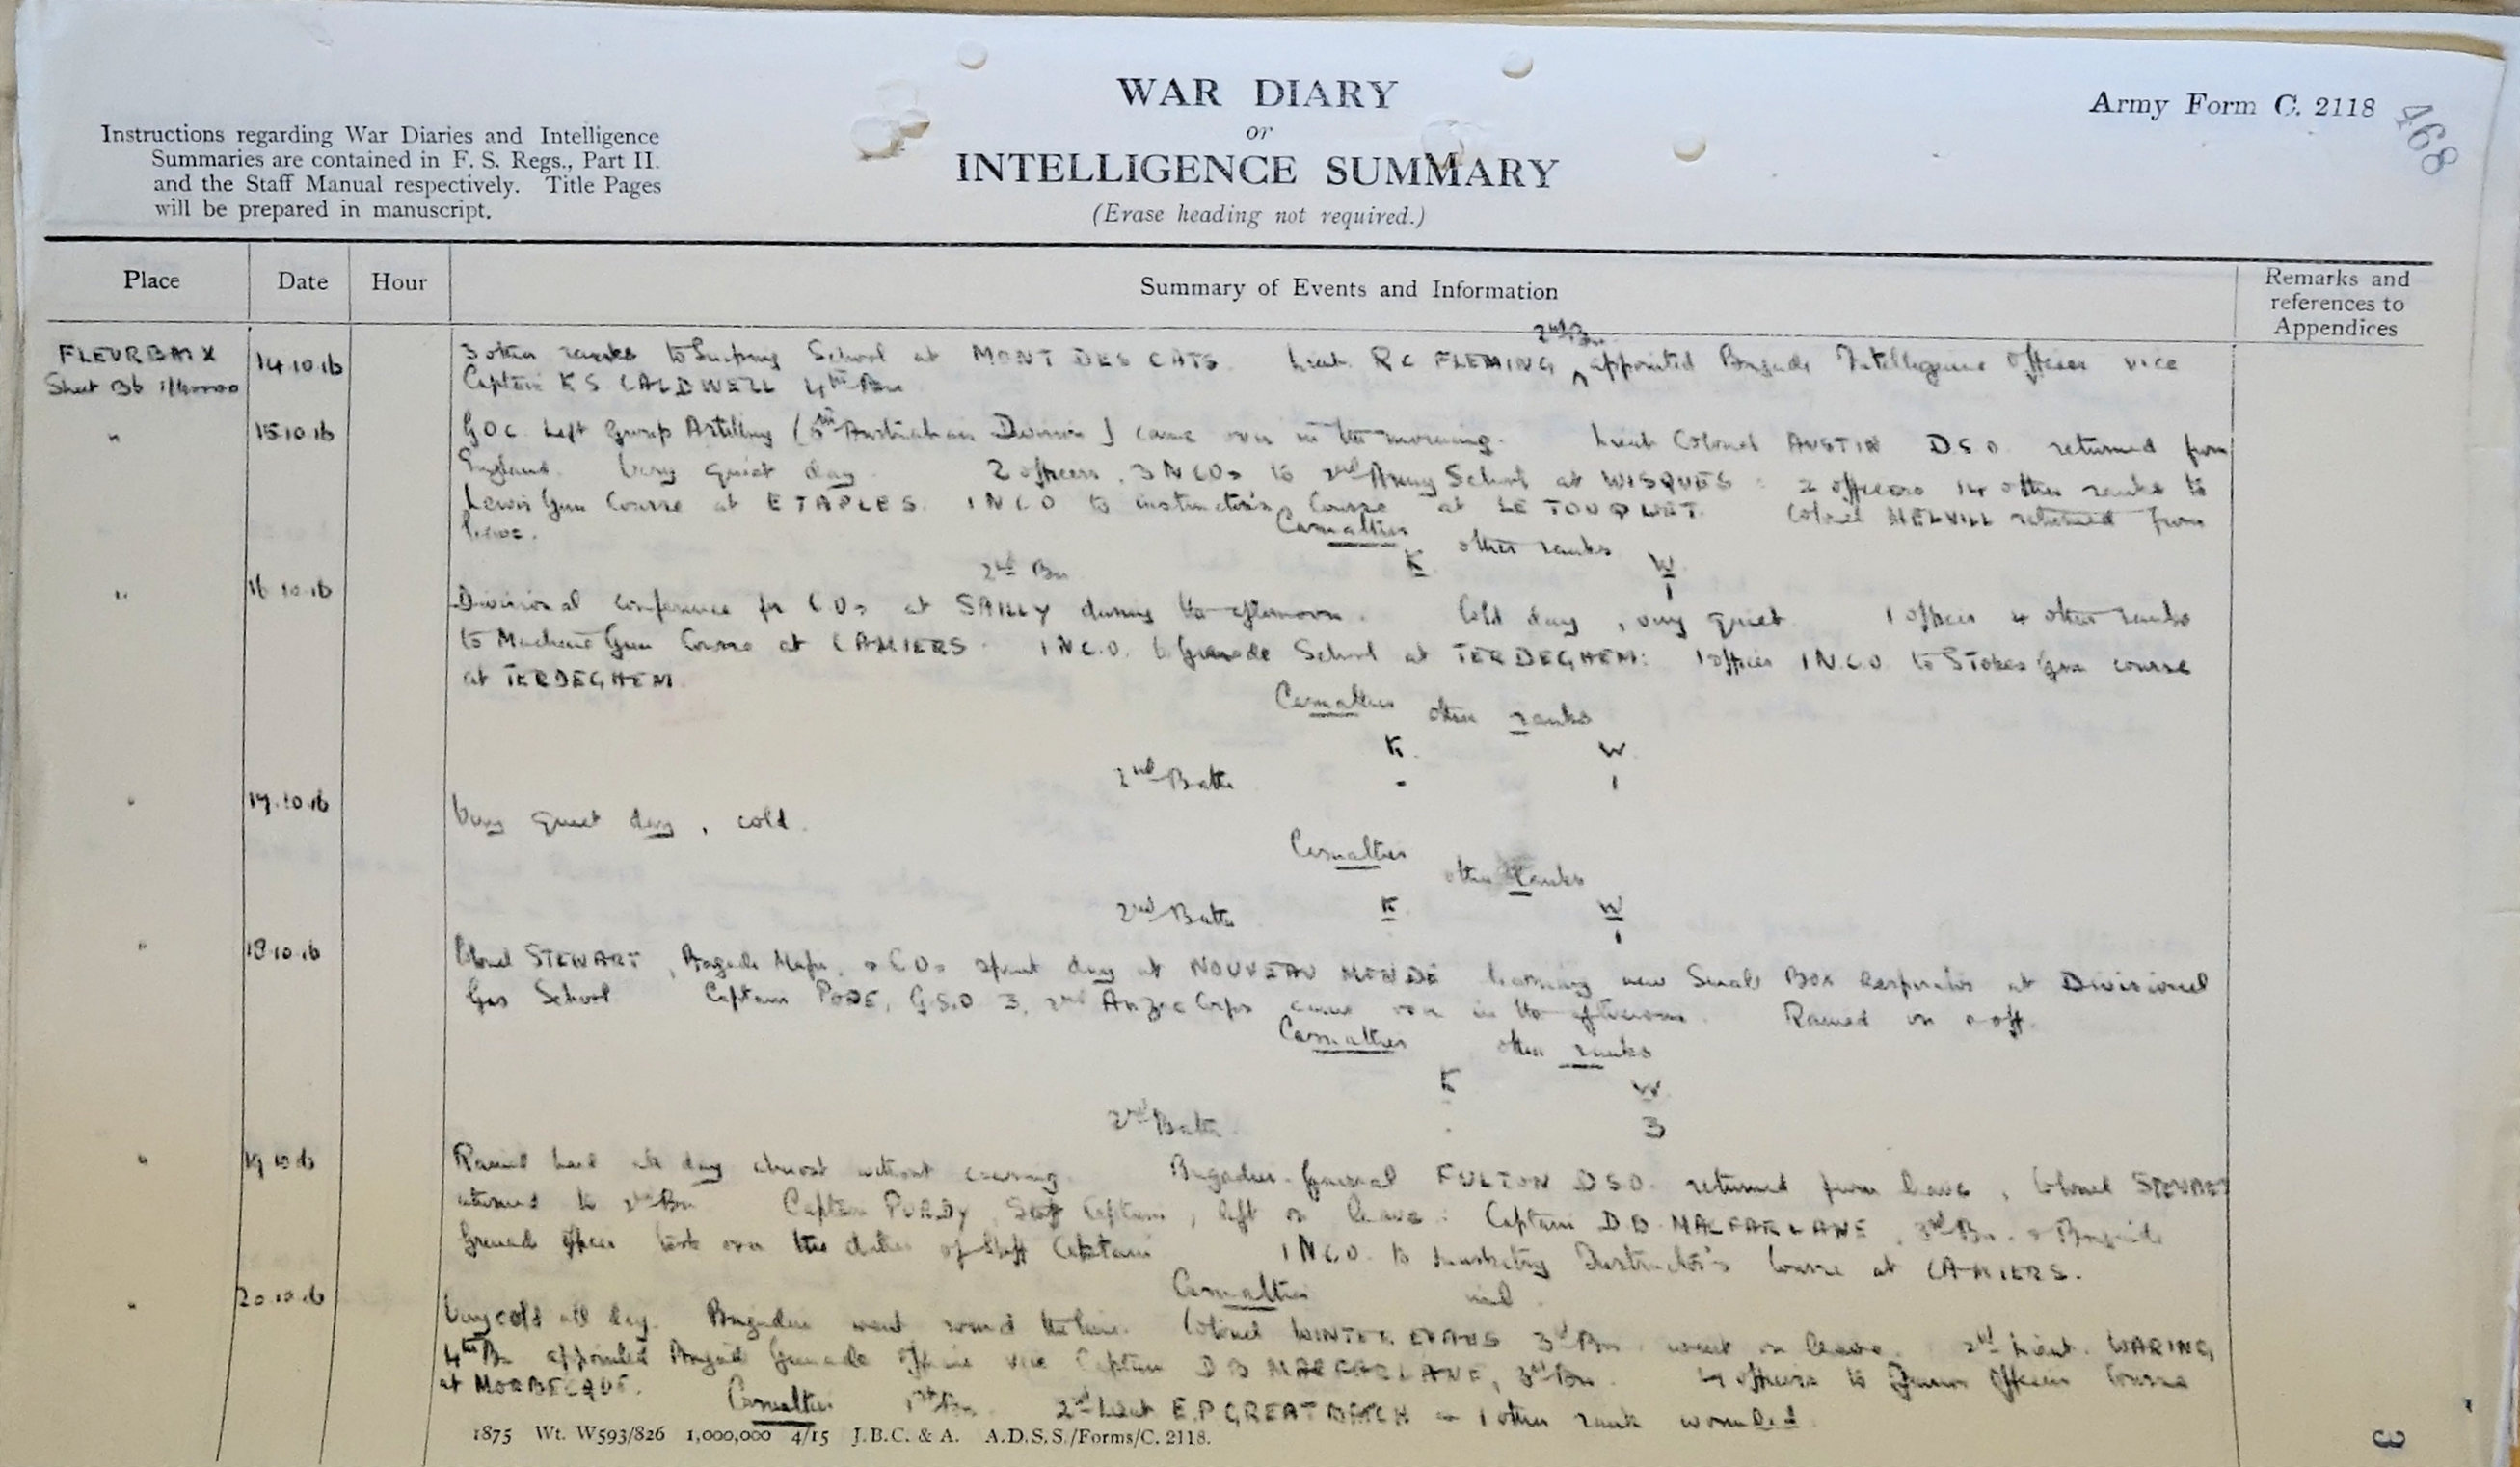 WAR DIARY
or
INTELLIGENCE SUMMARY
(Erase heading not required.)
Army Form C. 2118
468
Instructions regarding War Diaries and Intelligence
Summaries are contained in F. S. Regs., Part II.
and the Staff Manual respectively. Title Pages
will be prepared in manuscript.
Place Date Hour Summary of Events and Information Remarks and references to Appendices
2nd Bn
FLEURBAIX 14.10.16 3 other ranks to Sniping School at MONT DES CATS. Lieut. R C FLEMING ^ appointed Brigade Intelligence Officer vice
Sheet 36 1/40000 Captain K S CALDWELL 4th Bn
" 15.10.16 G.O.C. Left Group Artillery (5th Australian Division) came over in the morning. Lieut Colonel AUSTIN D.S.O. returned from
England. Very quiet day. 2 officers, 3 NCOs to 2nd Army School at WISQUES: 2 officers 14 other ranks to
Lewis Gun Course at ETAPLES. 1 NCO to instructor's Course at LE TOUQUET. Colonel MELVILL returned from
leave. Casualties other ranks
2nd Bn K. W. 1
" 16.10.16 Divisional Conference for COs at SAILLY during the afternoon. Cold day, very quiet. 1 officer 4 other ranks
to Machine Gun Course at CAMIERS. 1 N.C.O. to Grenade School at TERDEGHEM: 1 officer 1 N.C.O to Stokes Gun course
at TERDEGHEM.
Casualties other ranks
K. W.
2nd Battn - 1
" 17.10.16 Very quiet day, cold.
Casualties
other Ranks
2nd Battn K. W. 1
" 18.10.16 Colonel STEWART, Brigade Major, & COs spent day at NOUVEAU MONDE learning new Small Box Respirator at Divisional
Gas School Captain PODE, G.S.O 3, 2nd Anzac Corps came over in the afternoon. Rained on & off.
Casualties other ranks
K W.
2nd Battn. . 3
" 19.10.16 Rained hard all day almost without ceasing. Brigadier-General FULTON DSO. returned from leave, Colonel STEWART
returned to 2nd Bn Captain PURDY, Staff Captain, left on leave: Captain D.B. MACFARLANE, 3rd Bn. & Brigade
Grenade Officer took over the duties of Staff Captain 1 N.C.O. to Musketry Instructor's Course at CAMIERS.
Casualties nil.
" 20.10.16 Very cold all day. Brigadier went round the line. Colonel WINTER EVANS 3rd Bn. went on leave. 2nd Lieut. WARING,
4th Bn appointed Brigade Grenade Officer vice Captain D B MACFARLANE, 3rd Bn. 4 officers to Junior Officers Course
at MORBECQUE. Casualties 1st Bn. 2nd Lieut E.P GREATBATCH & 1 other rank wounded.
1875 Wt. W593/826 1,000,000 4/15 J.B.C. & A. A.D.S.S./Forms/C. 2118.
3